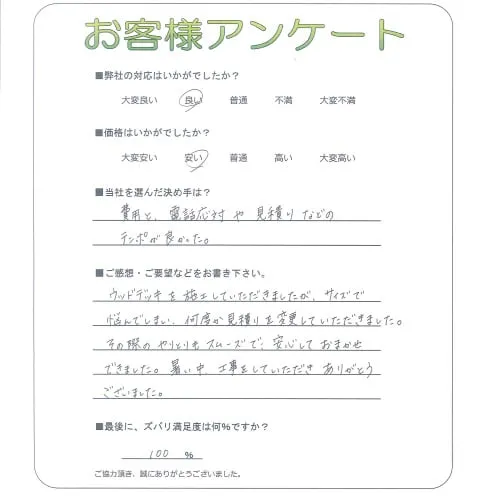 お客様アンケート
■弊社の対応はいかがでしたか？
大変良い 良い 普通 不満 大変不満
■価格はいかがでしたか？
大変安い 安い 普通 高い 大変高い
■当社を選んだ決め手は？
費用と、電話応対や見積りなどの
テンポが良かった。
■ご感想・ご要望などをお書き下さい。
ウッドデッキを施工していただきましたが、サイズで
悩んでしまい、何度か見積りを変更していただきました。
その際のやりとりもスムーズで、安心しておまかせ
できました。暑い中、工事をしていただきありがとう
ございました。
■最後に、ズバリ満足度は何％ですか？
100 ％
ご協力頂き、誠にありがとうございました。